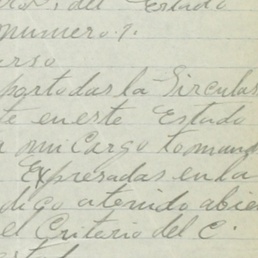 del Estado
numero 7.
urso
portodas la Sircular
te en este Estado
a mi Cargo tomand
Expresadas en la
digo atenido abie
el Criterio del C.